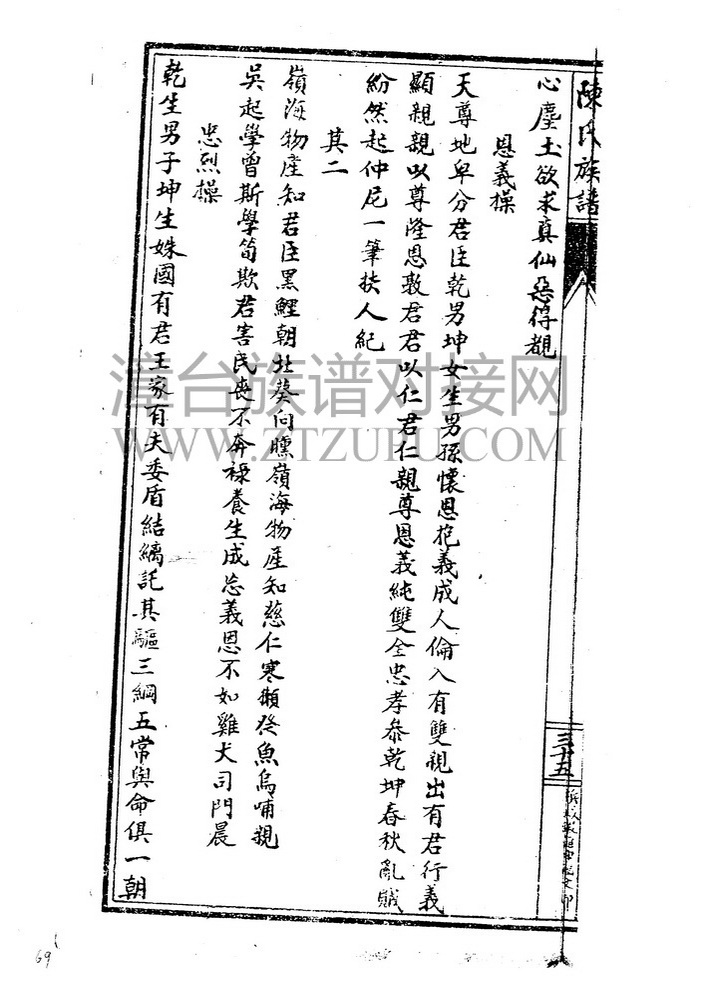 陳氏族譜
心塵土欲求真仙惡得覩
恩義操
天尊地卑分君臣乾男坤女生男孫懷恩抱義成人倫入有雙親出有君行義
顯親親以尊隆恩敦君君以仁君仁親尊恩義純雙全忠孝叅乾坤春秋亂賊
紛然起仲尼一筆扶人紀
其二
嶺海物產知君臣黑鯉朝北葵向曛嶺海物產知慈仁寒獺祭魚烏哺親
吳起學曾斯學荀欺君害民喪不奔祿養生成忘義恩不如雞犬司門晨
忠烈操
乾生男子坤生姝國有君王家有夫委盾結縭託其驅三綱五常與命俱一朝
三十五
漳台族谱对接网
WWW.ZTZUPU.COM
69